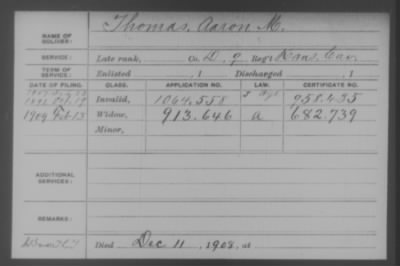 NAME OF SOLDIER: Thomas, Aaron M.
SERVICE: Late rank, Co. D, 9 Reg't Kans. Cav.
TERM OF SERVICE: Enlisted , 1 Discharged , 1
DATE OF FILING. CLASS. APPLICATION NO. LAW. CERTIFICATE NO.
Invalid, 1064.558 958.435
1909 Feb 13 Widow, 913.646 a 682.739
Minor,
ADDITIONAL SERVICES:
REMARKS:
Died Dec 11, 1908, at